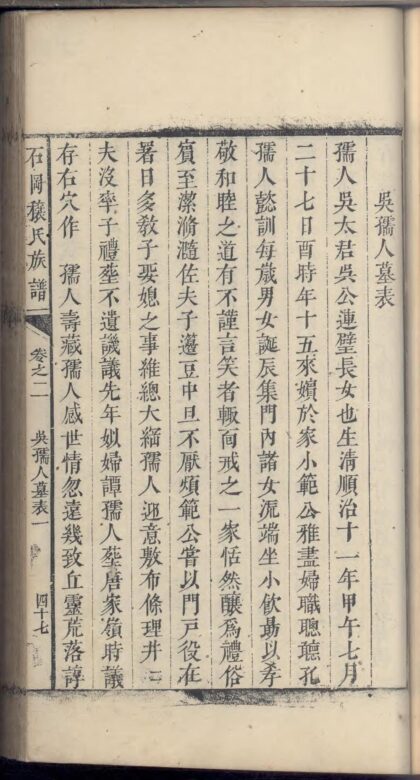 吳孺人墓表
孺人吳太君吳公連璧長女也生清順治十一年甲午七月
二十七日酉時年十五來嬪於家小範公雅盡婦職聰聽孔
孺人懿訓每歲男女誕辰集門內諸女流端坐小飲勗以孝
敬和睦之道有不謹言笑者輙面戒之一家恬然釀爲禮俗
賓至潔滫瀡佐夫子邊豆中旦不厭煩範公嘗以門戶役在
署日多教子娶媳之事維總大綱孺人迎意敷布條理井〻
夫沒率子禮塟不遺譏議先年姒婦譚孺人塟唐家嶺時議
存右穴作　孺人壽藏孺人感世情忽遠幾致丘靈荒落諄
石岡穰氏族譜
卷之二
吳孺人墓表一
四十七